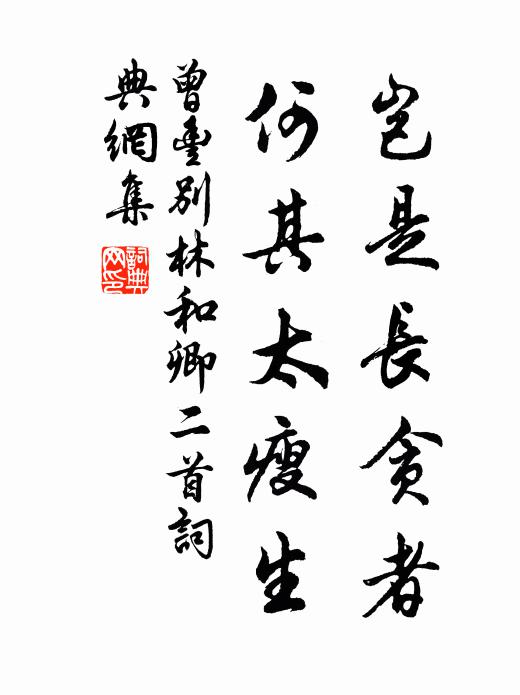 豈是長貪者
何其太瘦生
曾豐別林和卿二首詞
典網集
詞典
网印